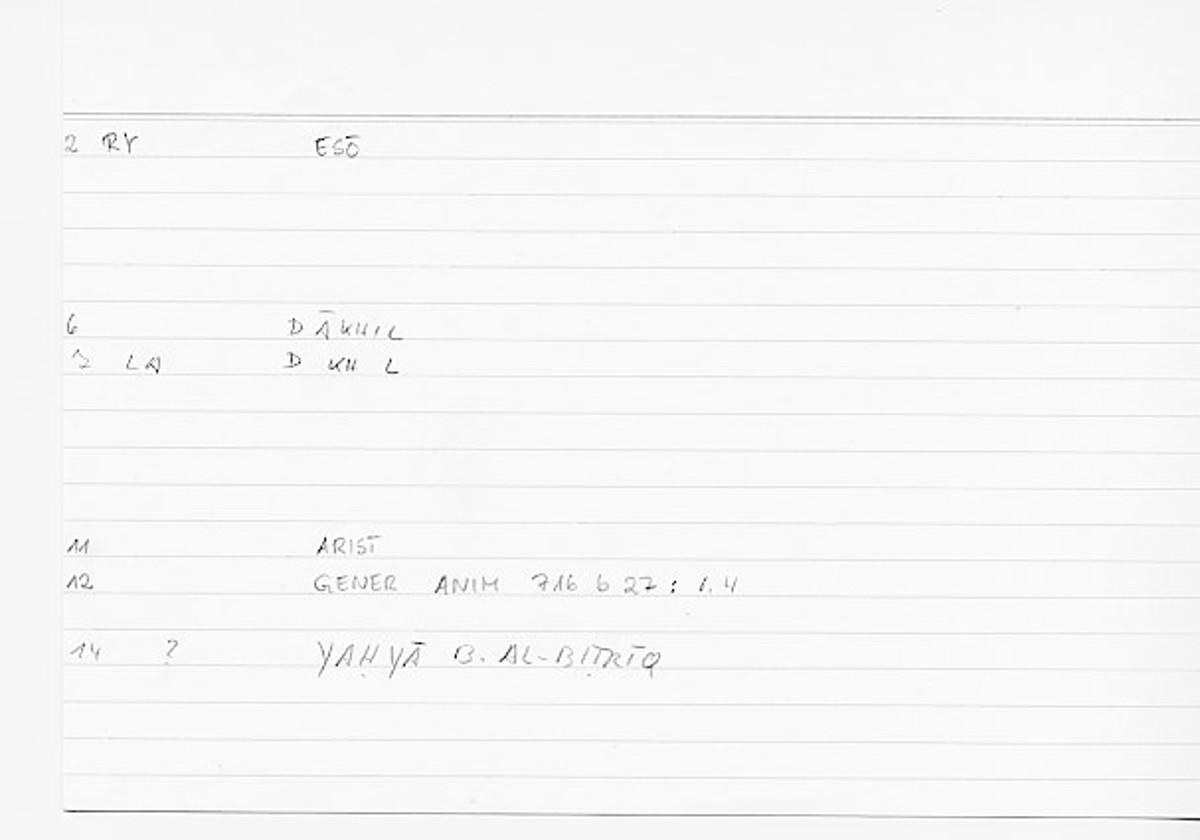 2 RY ESŌ
6 DĀKHIL
7 LA D KH L
11 ARIST
12 GENER ANIM 716 b 27 : 1.4
14 ? YAḤYĀ B. AL-BIṬRĪQ